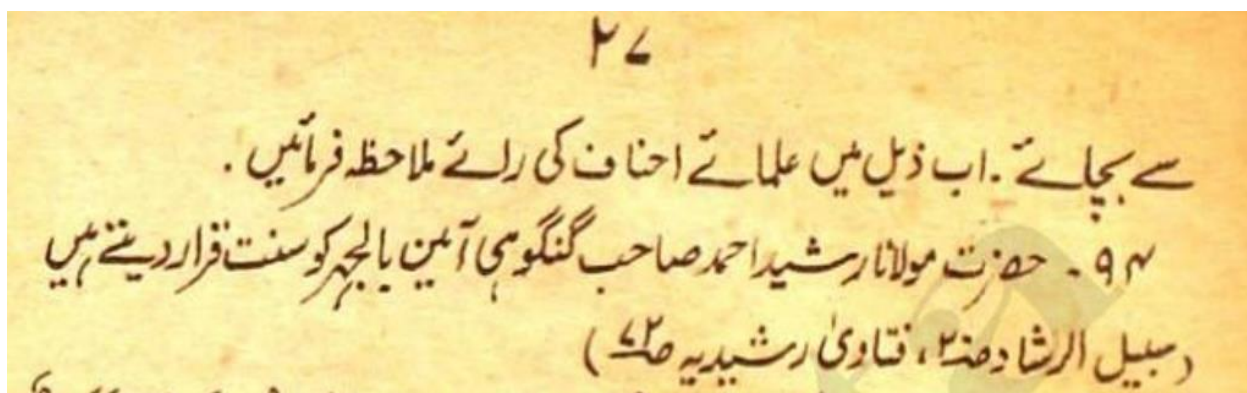 ۲۷
سے بچائے ۔ اب ذیل میں علمائے احناف کی رائے ملاحظہ فرمائیں ۔
۹۴ ۔ حضرت مولانا رشید احمد صاحب گنگوہی آمین بالجہر کو سنت قرار دیتے ہیں
(سبیل الرشاد ، فتاویٰ رشیدیہ)